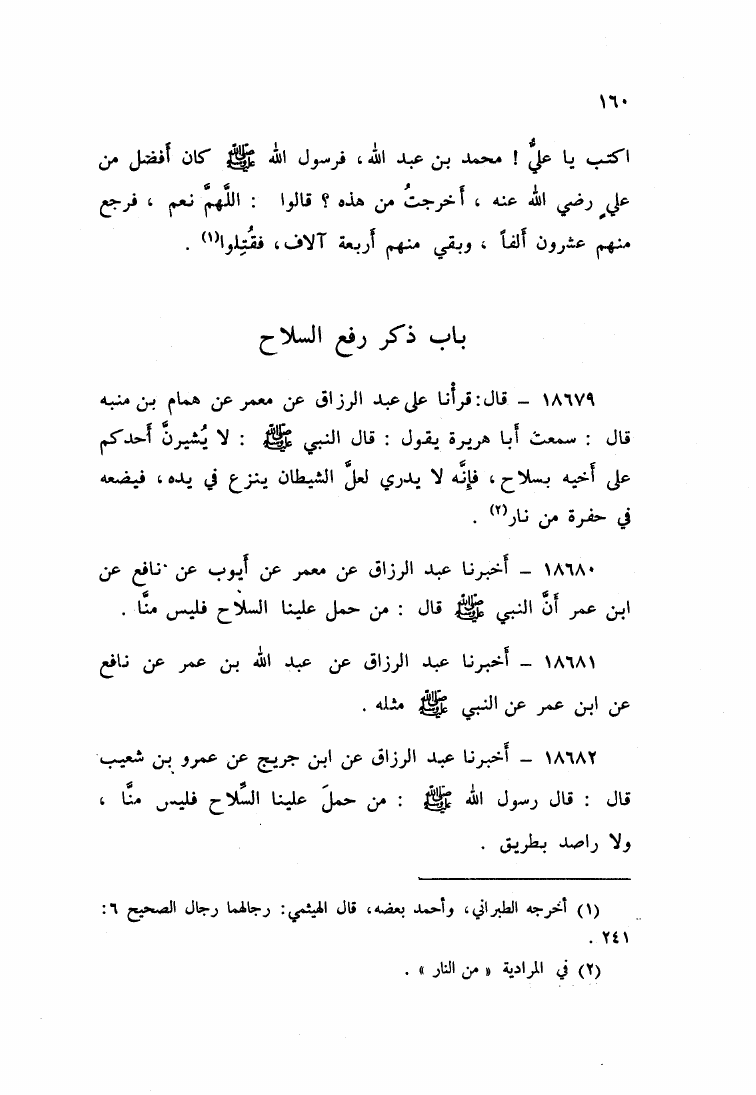 ١٦٠
اكتب يا عليُّ ! محمد بن عبد الله، فرسول الله ﷺ كان أفضل من
عليٍ رضي الله عنه ، أخرجتُ من هذه ؟ قالوا : اللَّهمَّ نعم ، فرجع
منهم عشرون ألفاً ، وبقي منهم أربعة آلاف، فقُتِلوا(١) .
باب ذكر رفع السلاح
١٨٦٧٩ – قال: قرأْنا على عبد الرزاق عن معمر عن همام بن منبه
قال : سمعت أبا هريرة يقول : قال النبي ﷺ : لا يُشيرنَّ أحدكم
على أخيه بسلاح، فإنَّه لا يدري لعلَّ الشيطان ينزع في يده، فيضعه
في حفرة من نار(٢) .
١٨٦٨٠ – أخبرنا عبد الرزاق عن معمر عن أيوب عن نافع عن
ابن عمر أنَّ النبي ﷺ قال : من حمل علينا السلاح فليس منَّا .
١٨٦٨١ – أخبرنا عبد الرزاق عن عبد الله بن عمر عن نافع
عن ابن عمر عن النبي ﷺ مثله .
١٨٦٨٢ – أخبرنا عبد الرزاق عن ابن جريج عن عمرو بن شعيب
قال : قال رسول الله ﷺ : من حملَ علينا السِّلاح فليس منَّا ،
ولا راصد بطريق .
(١) أخرجه الطبراني، وأحمد بعضه، قال الهيثمي: رجالهما رجال الصحيح ٦:
٢٤١ .
(٢) في المرادية « من النار » .